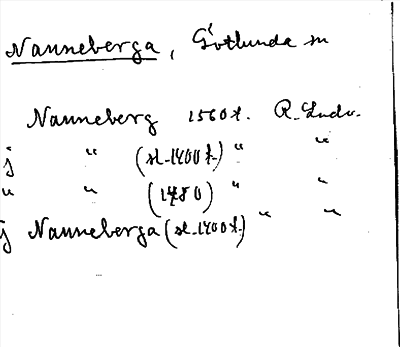 Nanneberga, Götlunda sn
Nanneberg 1560 t. R. Ludv.
j " (sl. 1400 t.) " "
u " (1480) " "
j Nanneberga (sl. 1400 t.) " "